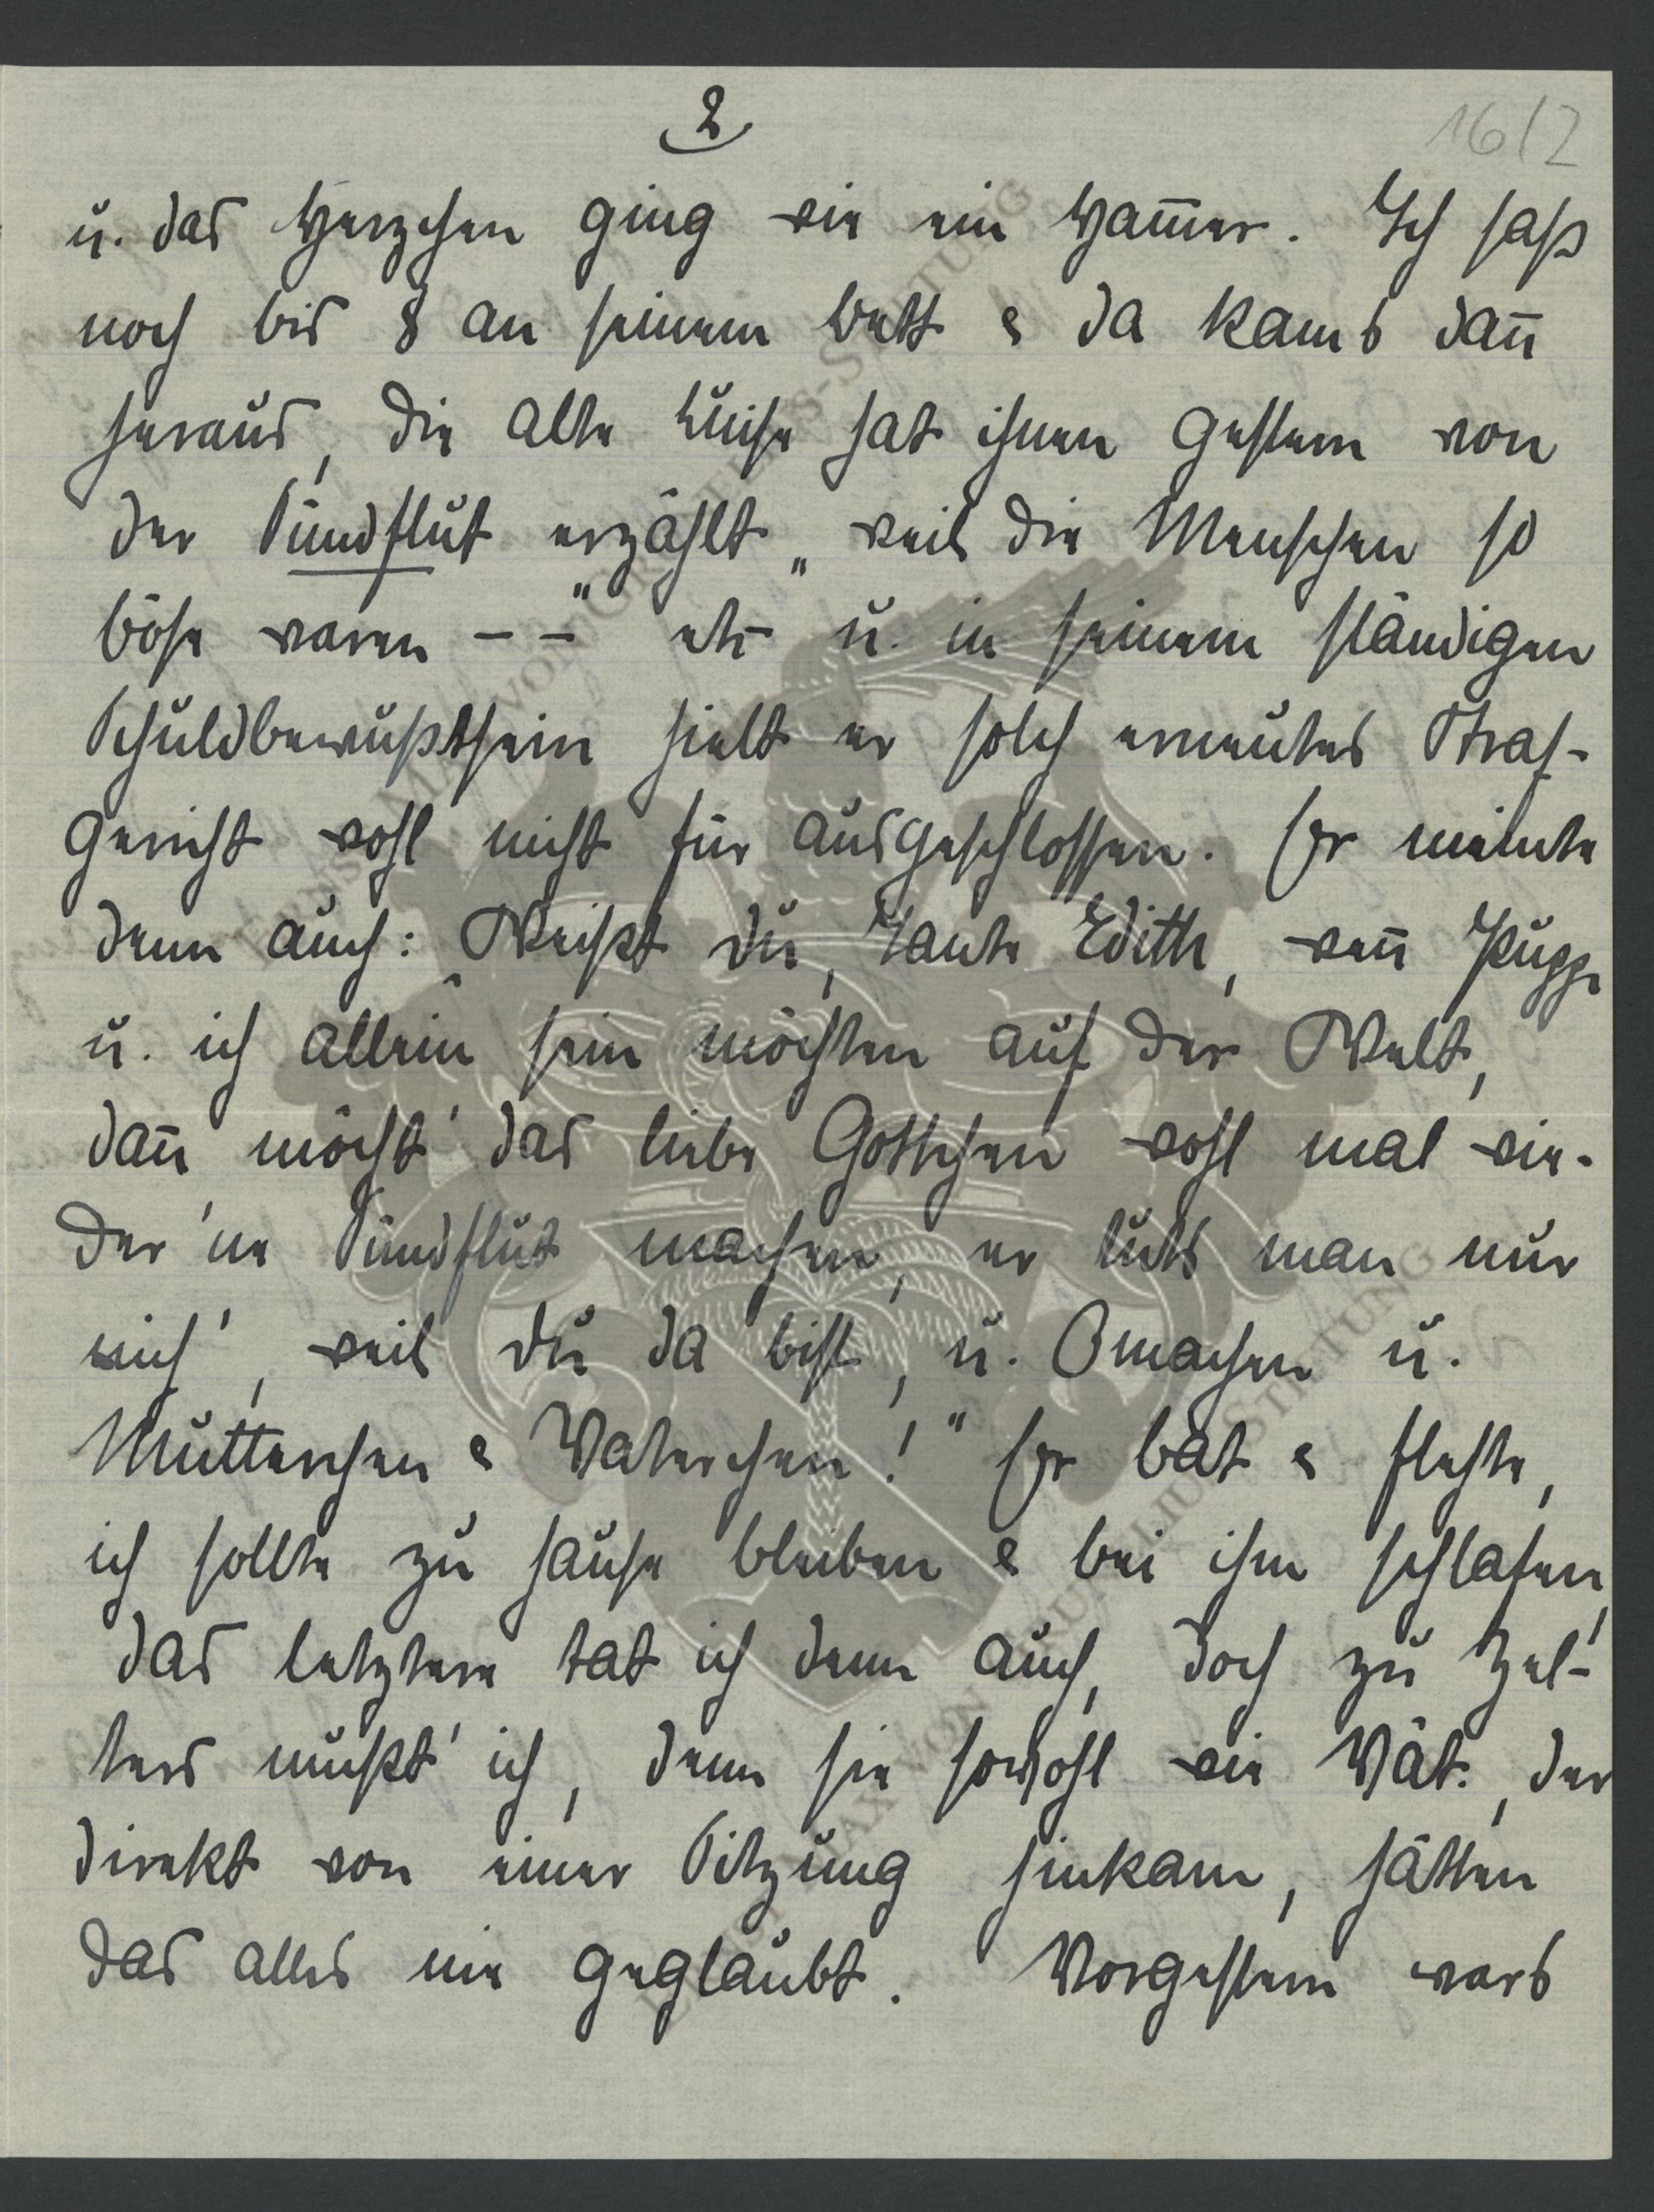 2
16/2
u. das Herzchen ging wie ein Ham̅er. Ich saß
noch bis 8 an seinem Bett & da kams dan̅
heraus, die alte Luise hat ihnen gestern von
der Sündflut erzählt „weil die Menschen so
böse waren – –“ etc u. in seinem ständigen
Schuldbewußtsein hielt er solch erneutes Straf-
gericht wohl nicht für ausgeschlossen. Er meinte
denn auch: „Weißt du, Tante Edith, wen̅ Pugge
u. ich allein sein möchten auf der Welt,
dan̅ möcht' das liebe Gottchen wohl mal wie-
der 'ne Sündflut machen, er tuts man nur
nich', weil du da bist, u. Omachen u.
Mutterchen & Vaterchen!“ Er bat & flehte,
ich sollte zu hause bleiben & bei ihm schlafen,
das letztere tat ich denn auch, doch zu Zel-
ters mußt' ich, denn sie sowohl wie Vät., der
direkt von einer Sitzung hinkam, hätten
das alles nie geglaubt. Vorgestern wars
LIUS-STIFTUNG